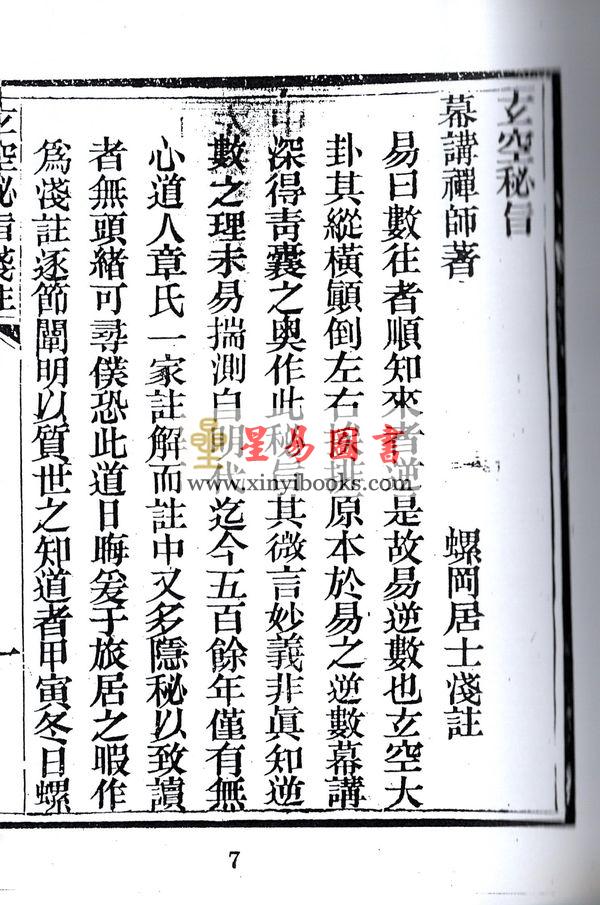 玄空秘旨
幕講禪師著
螺岡居士淺註
易曰數往者順知來者逆是故易逆數也玄空大
卦其縱橫顚倒左右挨排原本於易之逆數幕講
深得靑囊之奧作此秘旨其微言妙義非眞知逆
數之理未易揣測自明代迄今五百餘年僅有無
心道人章氏一家註解而註中又多隱秘以致讀
者無頭緒可尋僕恐此道日晦爰于旅居之暇作
爲淺註逐節闡明以質世之知道者甲寅冬日螺
玄空秘旨淺註
一
星易圖書
www.xinyibooks.com
7